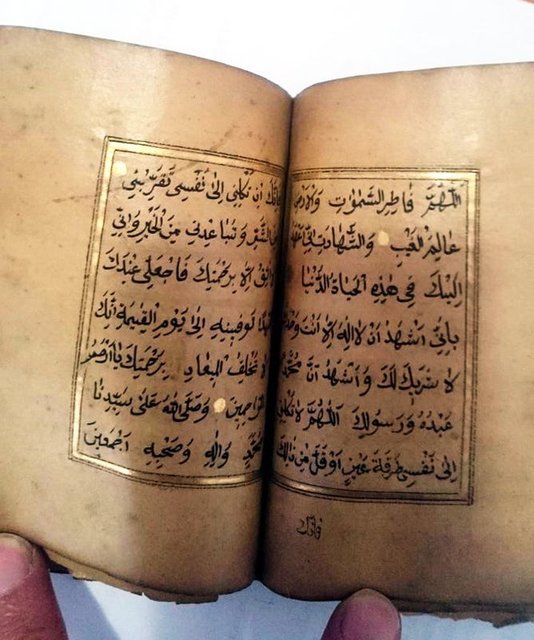 اَللّٰهُمَّ فَاطِرَ السَّمٰوَاتِ وَالْاَرْضِ
عَالِمَ الْغَيْبِ وَالشَّهَادَةِ اِنّٖى اَعْهَدُ
اِلَيْكَ فِى هٰذِهِ الْحَيَاةِ الدُّنْيَا
بِاَنّٖى اَشْهَدُ اَنْ لَا اِلٰهَ اِلَّا اَنْتَ وَحْدَكَ
لَا شَرِيكَ لَكَ وَاَشْهَدُ اَنَّ مُحَمَّدًا
عَبْدُهُ وَرَسُولُكَ اَللّٰهُمَّ لَا تَكِلْنِى
اِلٰى نَفْسِى طَرْفَةَ عَيْنٍ اَوْ اَقَلَّ مِنْ ذٰلِكَ
فَاِنَّكَ
فَاِنَّكَ اَنْ تَكِلْنِى اِلٰى نَفْسِى تُقَرِّبْنِى
اِلَى الشَّرِّ وَتُبَاعِدْنِى مِنَ الْخَيْرِ وَاِنّٖى
لَا اَثِقُ اِلَّا بِرَحْمَتِكَ فَاجْعَلْ لِى عِنْدَكَ
عَهْدًا تُوَفِّينِهِ اِلٰى يَوْمِ الْقِيٰمَةِ اِنَّكَ
لَا تُخْلِفُ الْمِيعَادَ بِرَحْمَتِكَ يَا اَرْحَمَ
الرَّاحِمِينَ وَصَلَّى اللّٰهُ عَلٰى سَيِّدِنَا
مُحَمَّدٍ وَاٰلِهِ وَصَحْبِهِ اَجْمَعِينَ